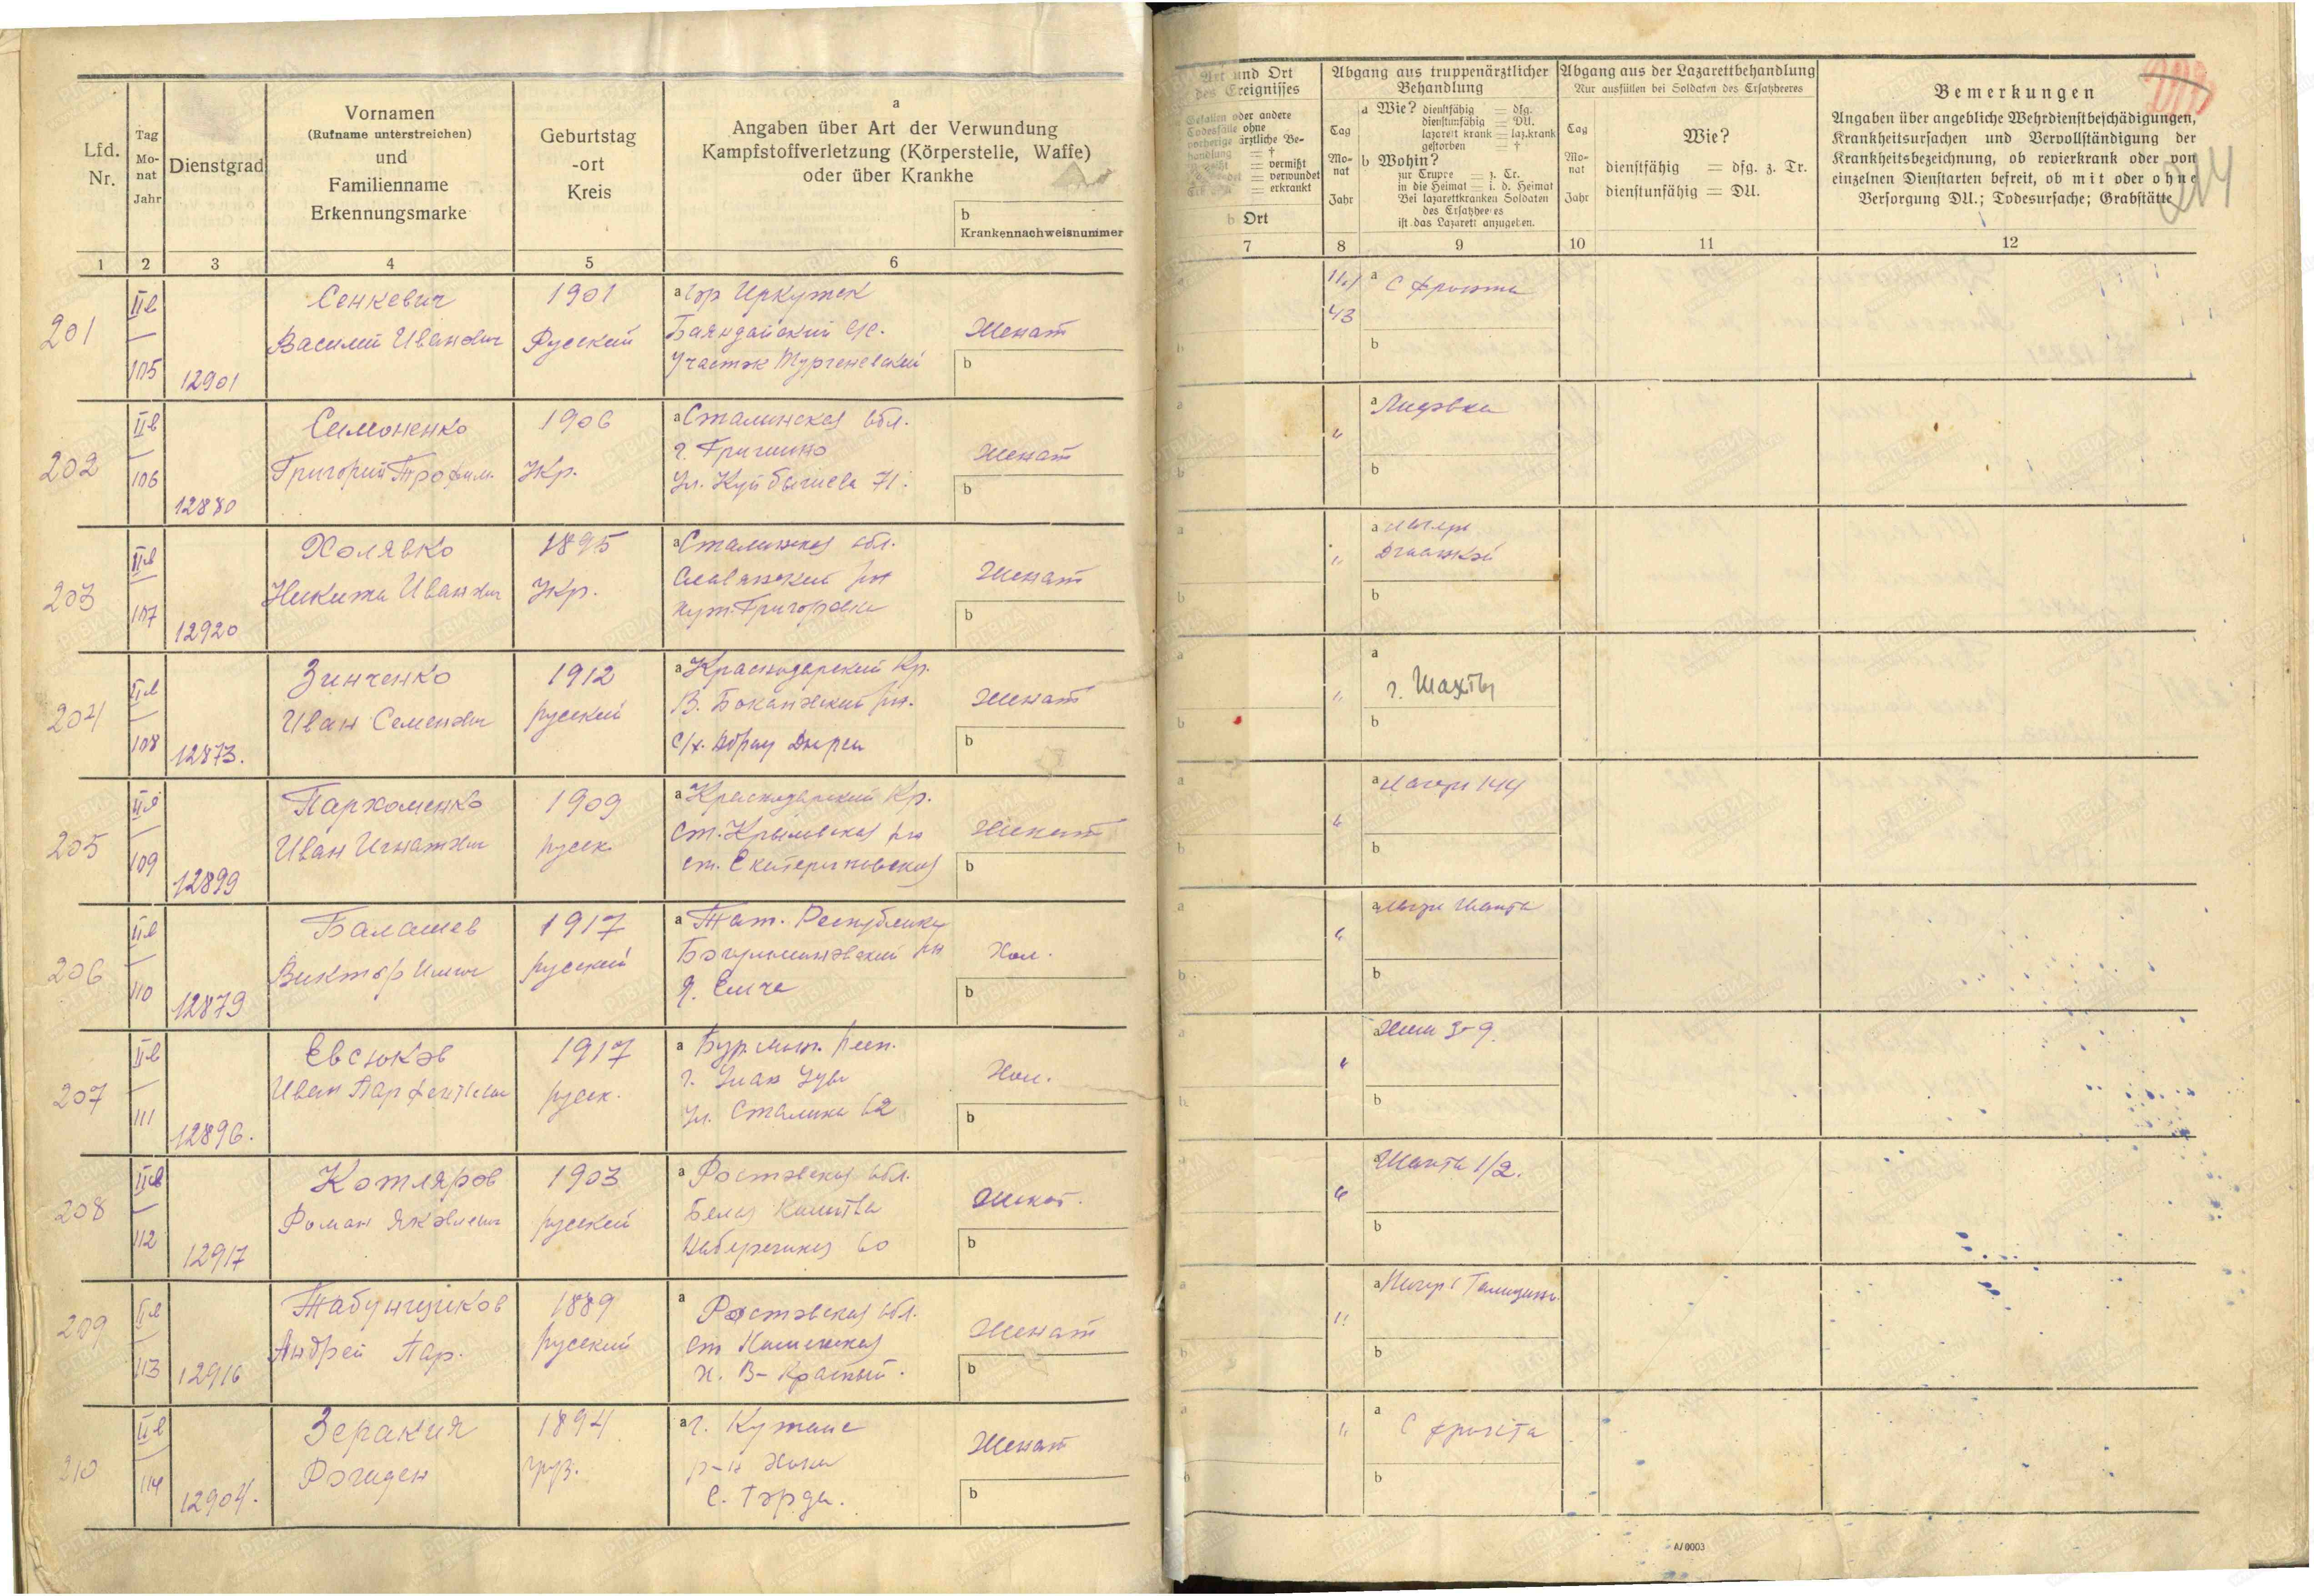 Lfd. Nr.
Tag Monat Jahr
Dienstgrad
Vornamen
(Rufname unterstreichen)
und
Familienname
Erkennungsmarke
Geburtstag
-ort
Kreis
a
Angaben über Art der Verwundung
Kampfstoffverletzung (Körperstelle, Waffe)
oder über Krankhe
b
Krankennachweisnummer
1 2 3 4 5 6
201
IIв
105
12901
Сенкевич
Василий Иванович
1901
Русский
а гор Иркутск
Баяндайский
Участок Тургеневский
Женат
b
202
IIв
106
12880
Симоненко
Григорий Трофим.
1906
Укр.
а Сталинская обл.
г. Гришино
Ул. Куйбышева 71.
Женат
b
203
IIв
107
12920
Холявко
Никита Иванович
1895
Укр.
а Сталинская обл.
Славянский рн
хут. Григоровка
Женат
b
204
IIв
108
12873.
Зинченко
Иван Семенович
1912
русский
а Краснодарский Кр.
В. Баканский рн.
С/х. Абрау Дюрсо
Женат
b
205
IIв
109
12899
Пархоменко
Иван Игнатович
1909
русск.
а Краснодарский Кр.
ст. Крыловская рн
ст. Екатериновская
Женат
b
206
IIв
110
12879
Балашев
Виктор Ильич
1917
русский
а Тат. Республика
Бугульминовский рн
Хол.
b
207
IIв
111
12896.
Евсюков
Иван Парфентьевич
1917
русск.
а Бур. Мон. Респ.
г. Улан Удэ
ул. Сталина 62
Хол.
b
208
IIв
112
12917
Котляров
Роман Яковлевич
1903
русский
а Ростовская обл.
Белая Калитва
Набережная 60
Женат.
b
209
IIв
113
12916
Табунщиков
Андрей Пар.
1889
русский
а
Ростовская обл.
ст
х. В-Красный.
Женат
b
210
IIв
114
12904.
Зеракия
Рожден
1894
груз.
а г. Кутаис
р-н Хони
с. Горди.
Женат
b
Art und Ort
des Ereignisses
Gefallen oder andere
Todesfälle ohne
vorherige ärztliche Be-
handlung = †
= vermißt
= verwundet
= erkrankt
b Ort
Abgang aus truppenärztlicher
Behandlung
Tag
Mo-
nat
Jahr
a Wie? dienstfähig = dfg.
dienstunfähig = DU.
lazarettkrank = laz.krank
gestorben = †
b Wohin?
zur Truppe = z. Tr.
in die Heimat = i. d. Heimat
Bei lazarettkranken Soldaten
des Ersatzheeres
ist das Lazarett anzugeben.
Abgang aus der Lazarettbehandlung
Nur ausfüllen bei Soldaten des Ersatzheeres
Tag
Mo-
nat
Jahr
Wie?
dienstfähig = dfg. z. Tr.
dienstunfähig = DU.
Bemerkungen
Angaben über angebliche Wehrdienstbeschädigungen,
Krankheitsursachen und Vervollständigung der
Krankheitsbezeichnung, ob revierkrank oder von
einzelnen Dienstarten befreit, ob mit oder ohne
Versorgung DU.; Todesursache; Grabstätte
7 8 9 10 11 12
43
a С фронта
b
a
b
a
b
a
г. Шахты
b
a Лагерь 144
b
a
b
a
b
a Шахта 1/2.
b
a
b
a
С фронта
b
A/0003